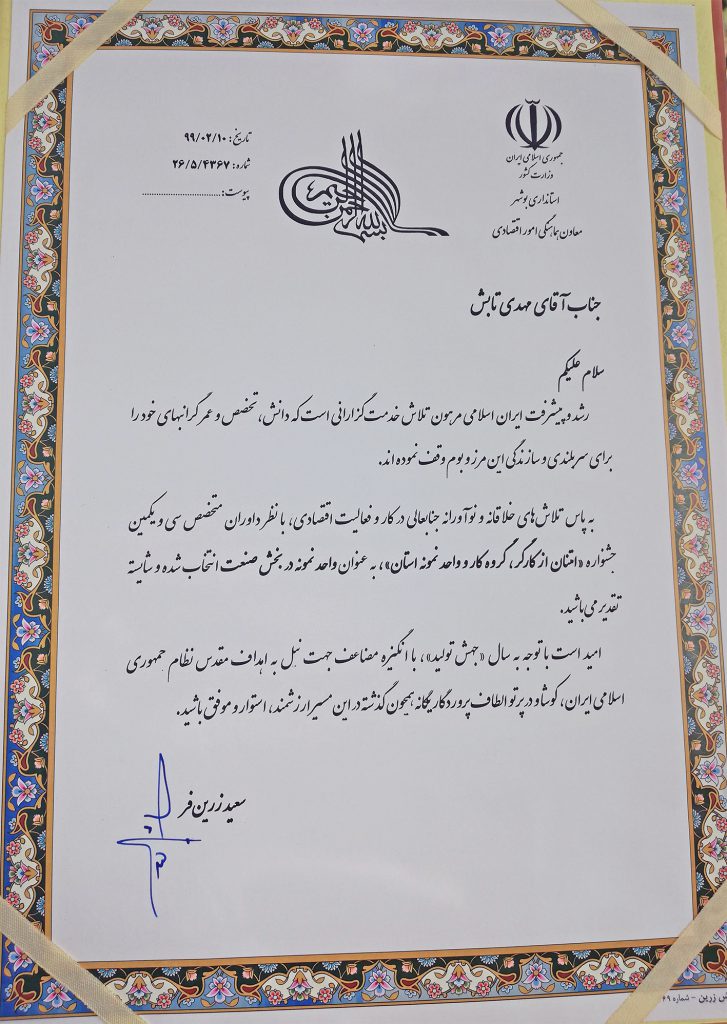 جمهوری اسلامی ایران
وزارت کشور
استانداری بوشهر
معاون هماهنگی امور اقتصادی
بسم الله الرحمن الرحیم
تاریخ: ۹۹/۰۲/۱۰
شماره: ۲۶/۵/۴۳۶۷
پیوست: ..........................
جناب آقای مهدی تابش
سلام علیکم
رشد و پیشرفت ایران اسلامی مرهون تلاش خدمت‌گزارانی است که دانش، تخصص و عمر گرانبهای خود را
برای سربلندی و سازندگی این مرز و بوم وقف نموده اند.
به پاس تلاش‌های خلاقانه و نوآورانه جنابعالی در کار و فعالیت اقتصادی، با نظر داوران متخصص سی و یکمین
جشنواره «امتنان از کارگر، گروه کار و واحد نمونه استان»، به عنوان واحد نمونه در بخش صنعت انتخاب شده و شایسته
تقدیر می‌باشید.
امید است با توجه به سال «جهش تولید»، با انگیزه مضاعف جهت نیل به اهداف مقدس نظام جمهوری
اسلامی ایران، کوشا و در پرتو الطاف پروردگار یگانه همچون گذشته در این مسیر ارزشمند، استوار و موفق باشید.
سعید زرین‌فر
زرین - شماره